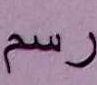 رسم